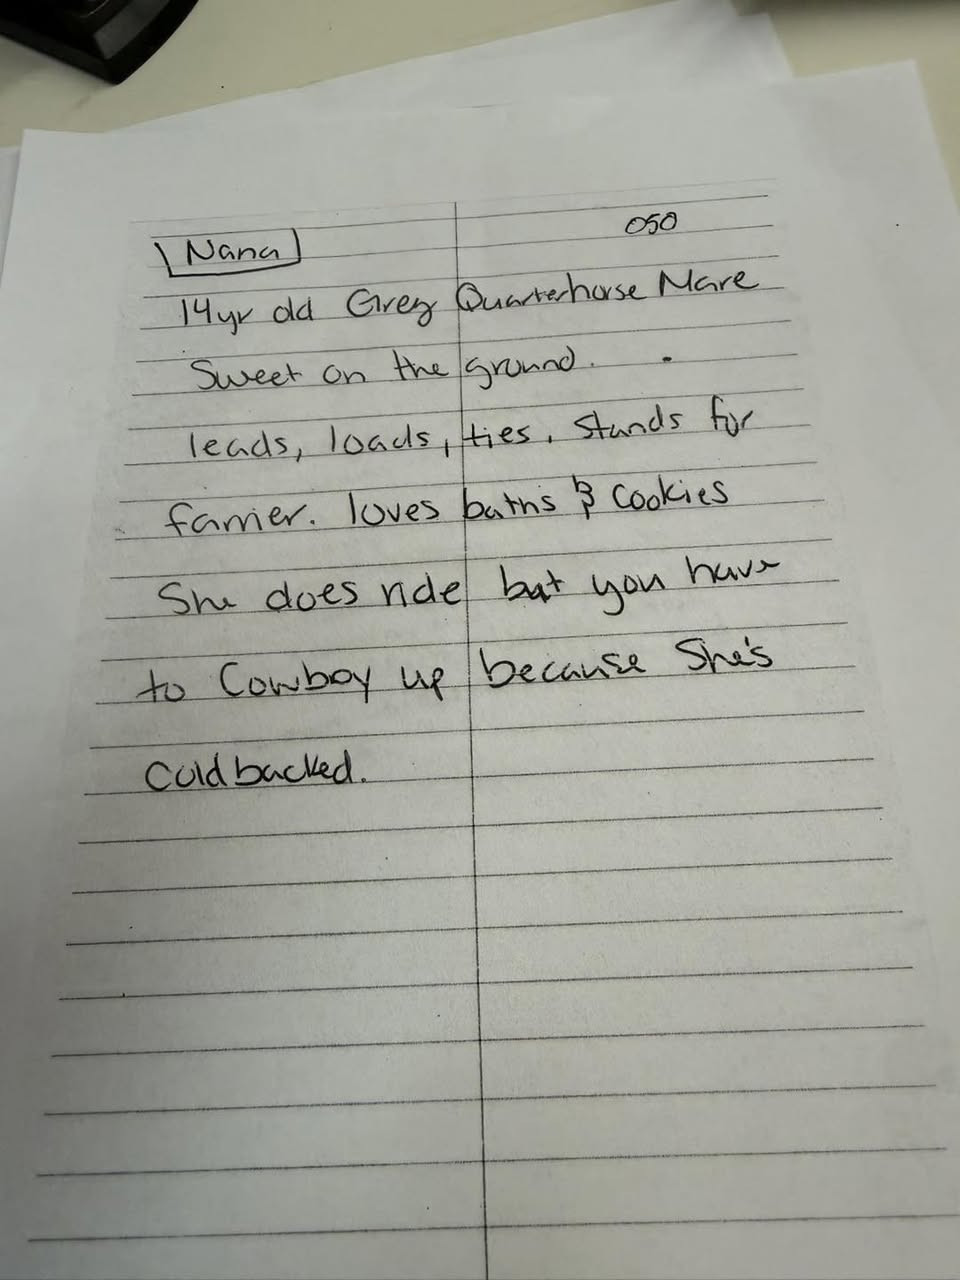 Nana 050
14yr old Grey Quarterhorse Mare
Sweet on the ground.
leads, loads, ties, stands for
farrier. loves baths & Cookies
She does ride but you have
to Cowboy up because She's
Coldbacked.